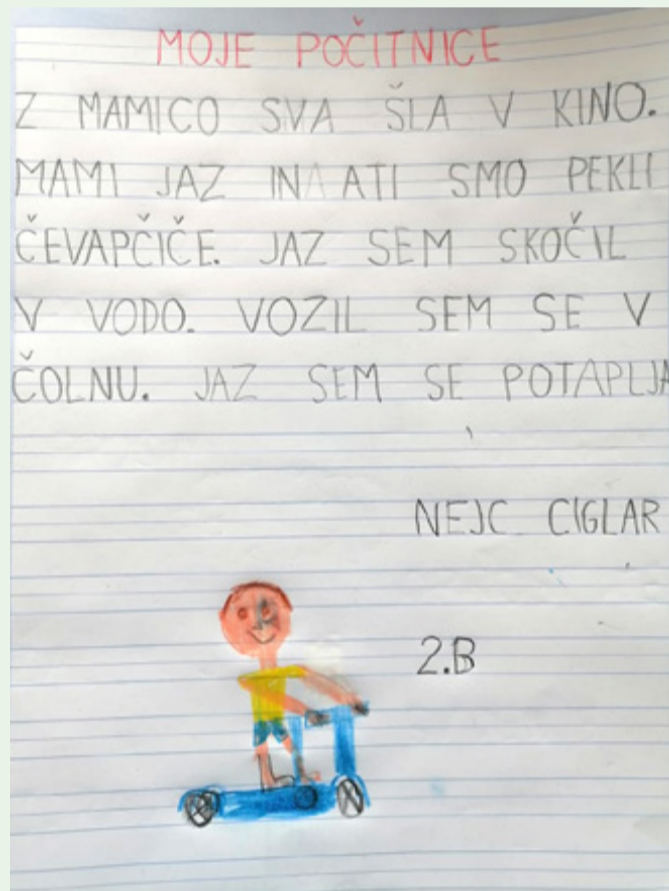 MOJE POČITNICE
Z MAMICO SVA ŠLA V KINO.
MAMI JAZ IN ATI SMO PEKLI
ČEVAPČIČE. JAZ SEM SKOČIL
V VODO. VOZIL SEM SE V
ČOLNU. JAZ SEM SE POTAPLJA
NEJC CIGLAR
2.B